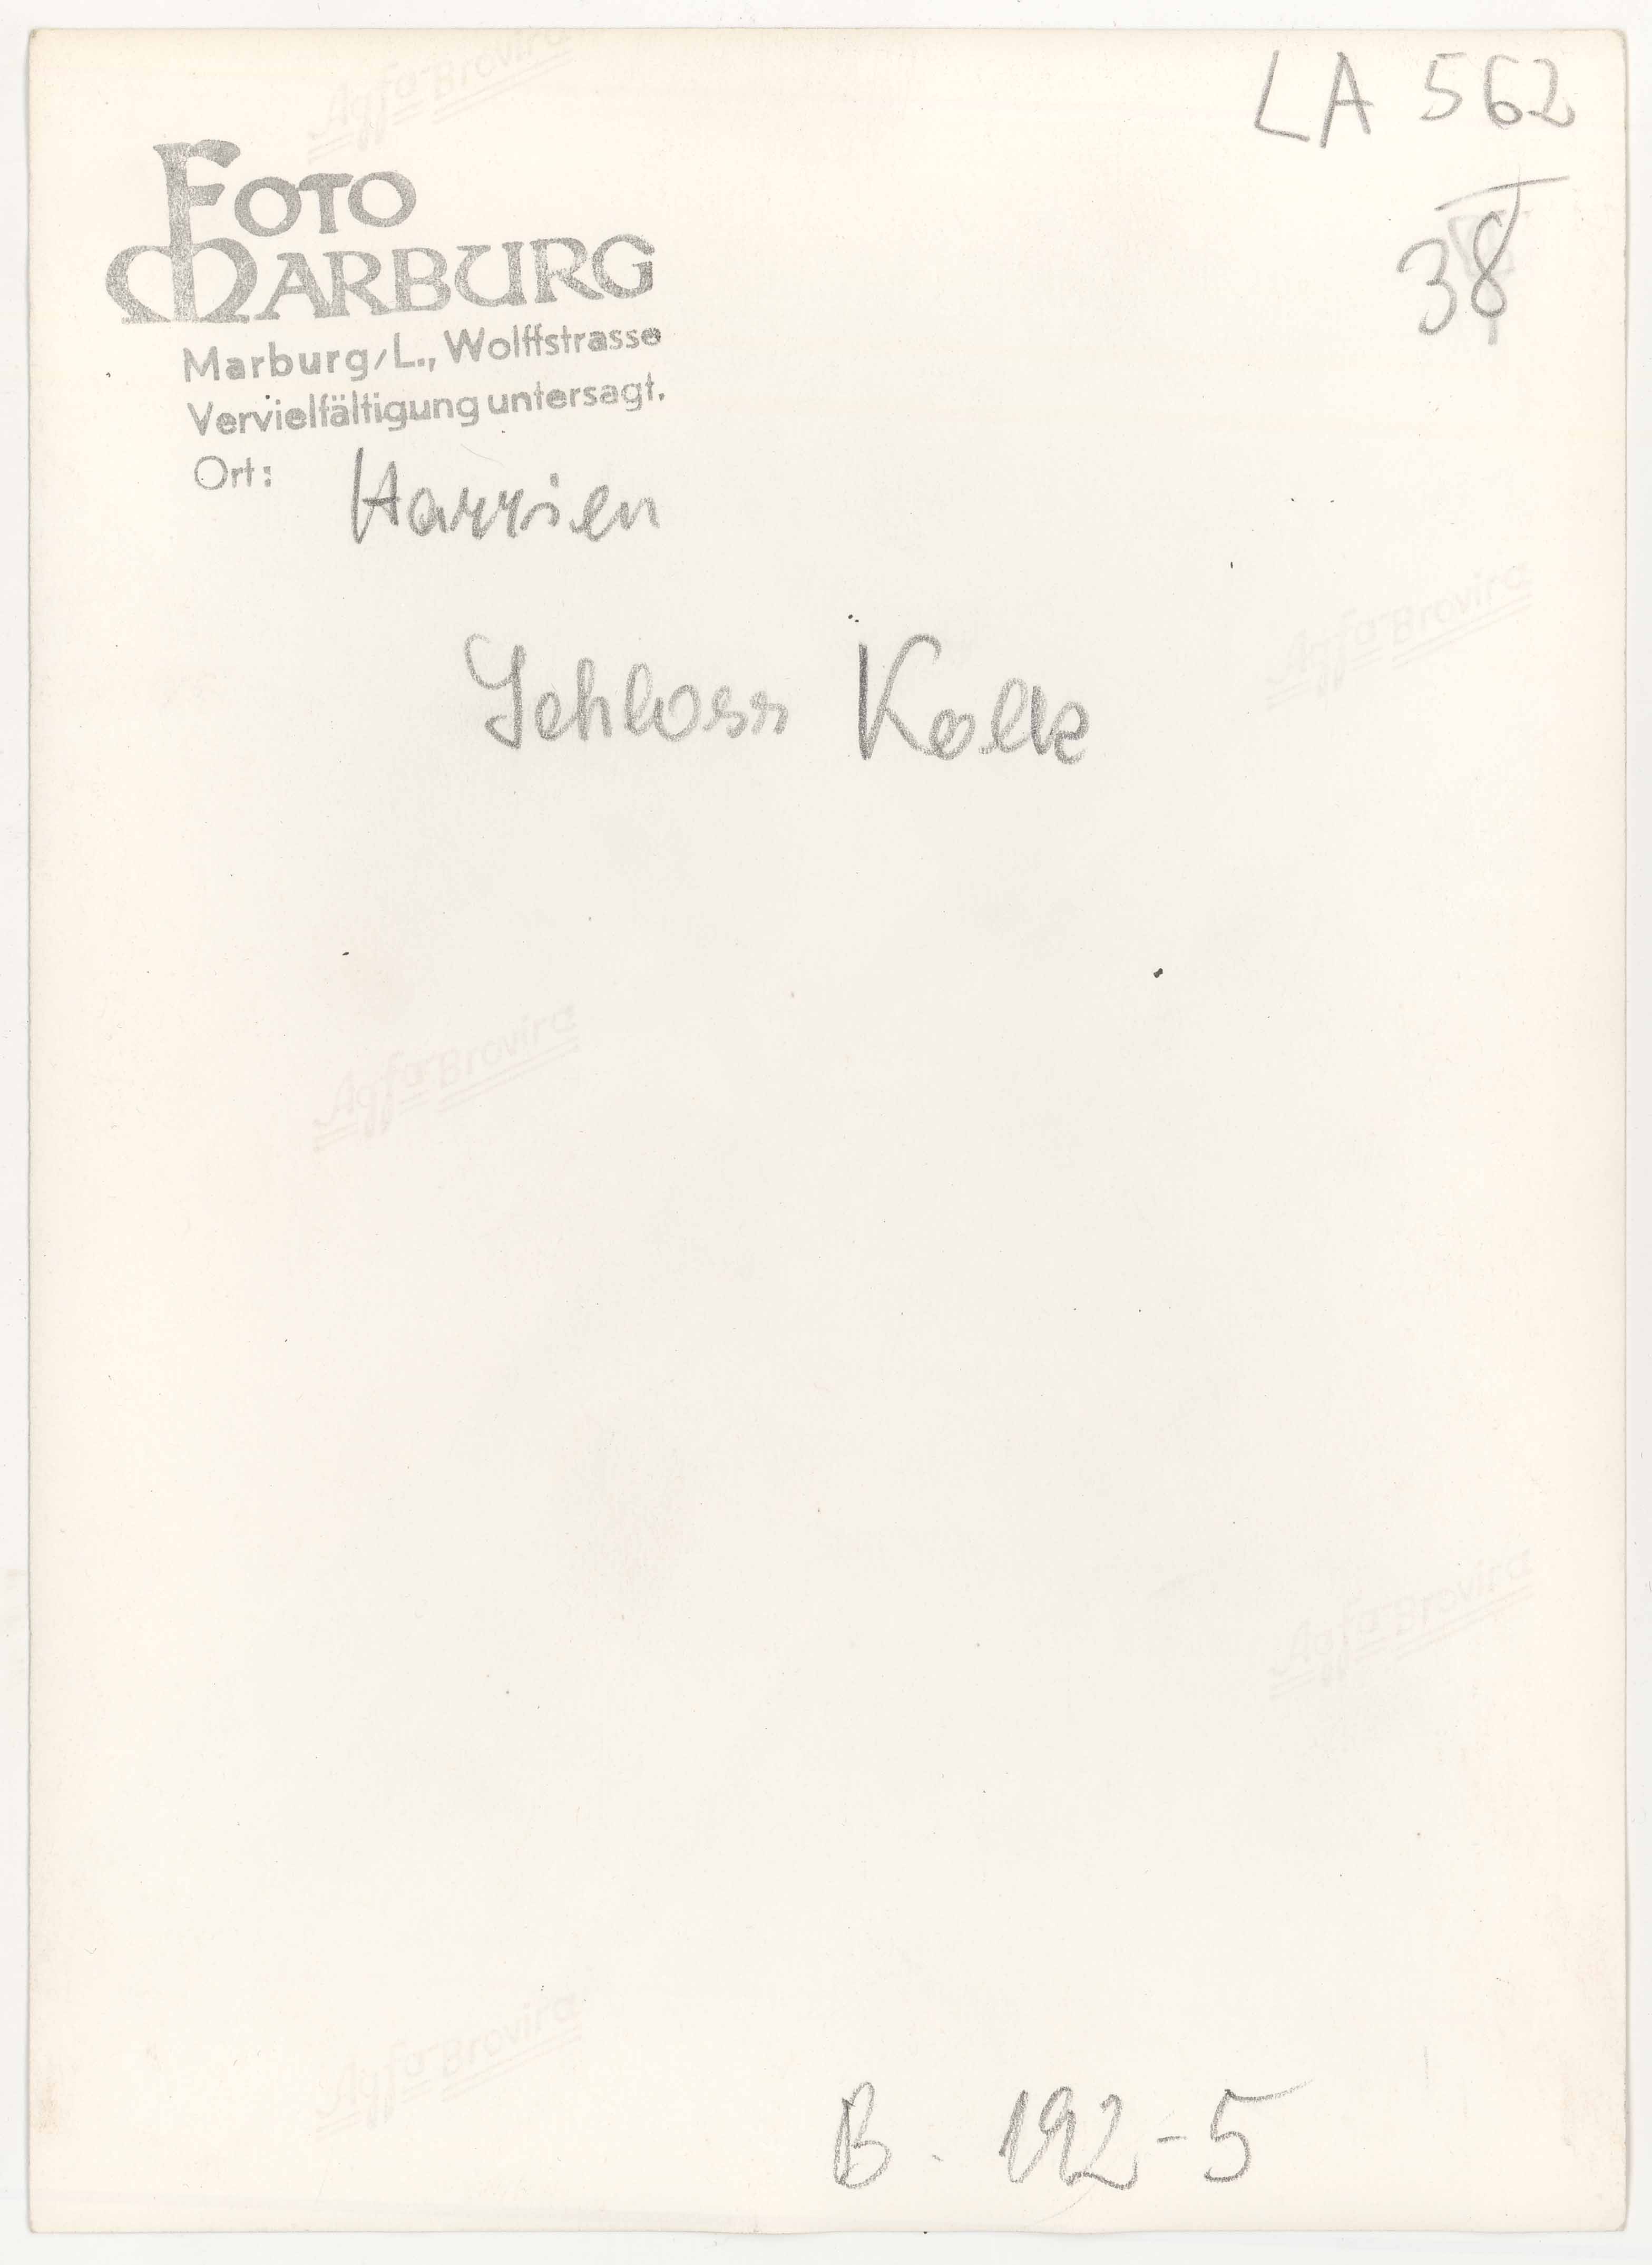 LA 562
38
FOTO
MARBURG
Marburg/L., Wolffstrasse
Vervielfältigung untersagt.
Ort: Harrien
Schloss Kolk
B. 192-5
Agfa-Brovira
Agfa-Brovira
Agfa-Brovira
Agfa-Brovira
Agfa-Brovira